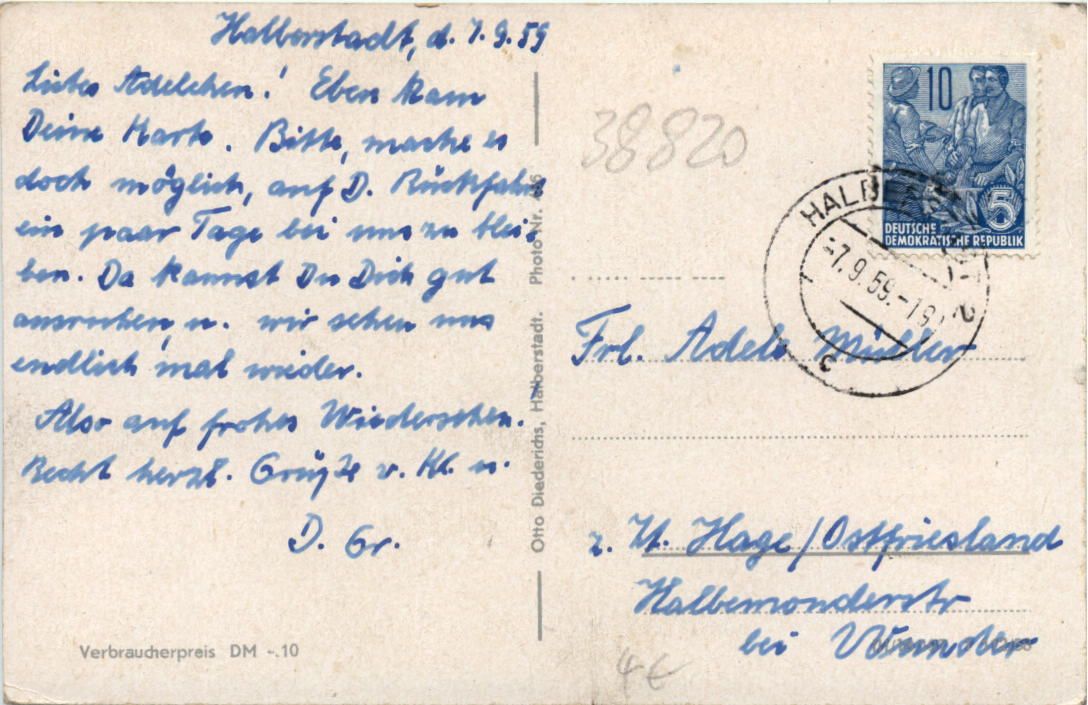 Halberstadt, d. 7.9.59
Liebes Adelchen! Eben kam
Deine Karte. Bitte, mache es
doch möglich, auf D. Rückfahrt
ein paar Tage bei uns zu blei-
ben. Da kannst Du Dich gut
ausruhen, u. wir sehen uns
endlich mal wieder.
Also auf frohes Wiedersehen.
Recht herzl. Grüße v. Kl. u.
D. Gr.
Verbraucherpreis DM -.10
Otto Diederichs, Halberstadt. Photo Nr.
38820
10
5
DEUTSCHE
DEMOKRATISCHE REPUBLIK
-7.9.59.-19
c
Frl. Adele Müller
z. Zt. Hage/Ostfriesland
Halbemonderstr
bei Wunder
4€